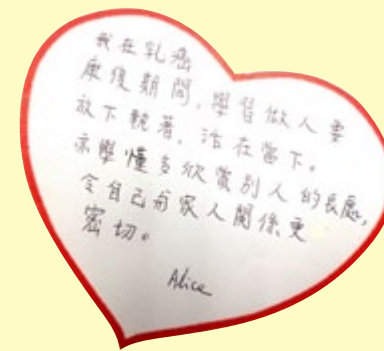 我在乳癌
康復期間，學習做人要
放下執著，活在當下。
亦學懂多欣賞別人的長處，
令自己與家人關係更
密切。
Alice